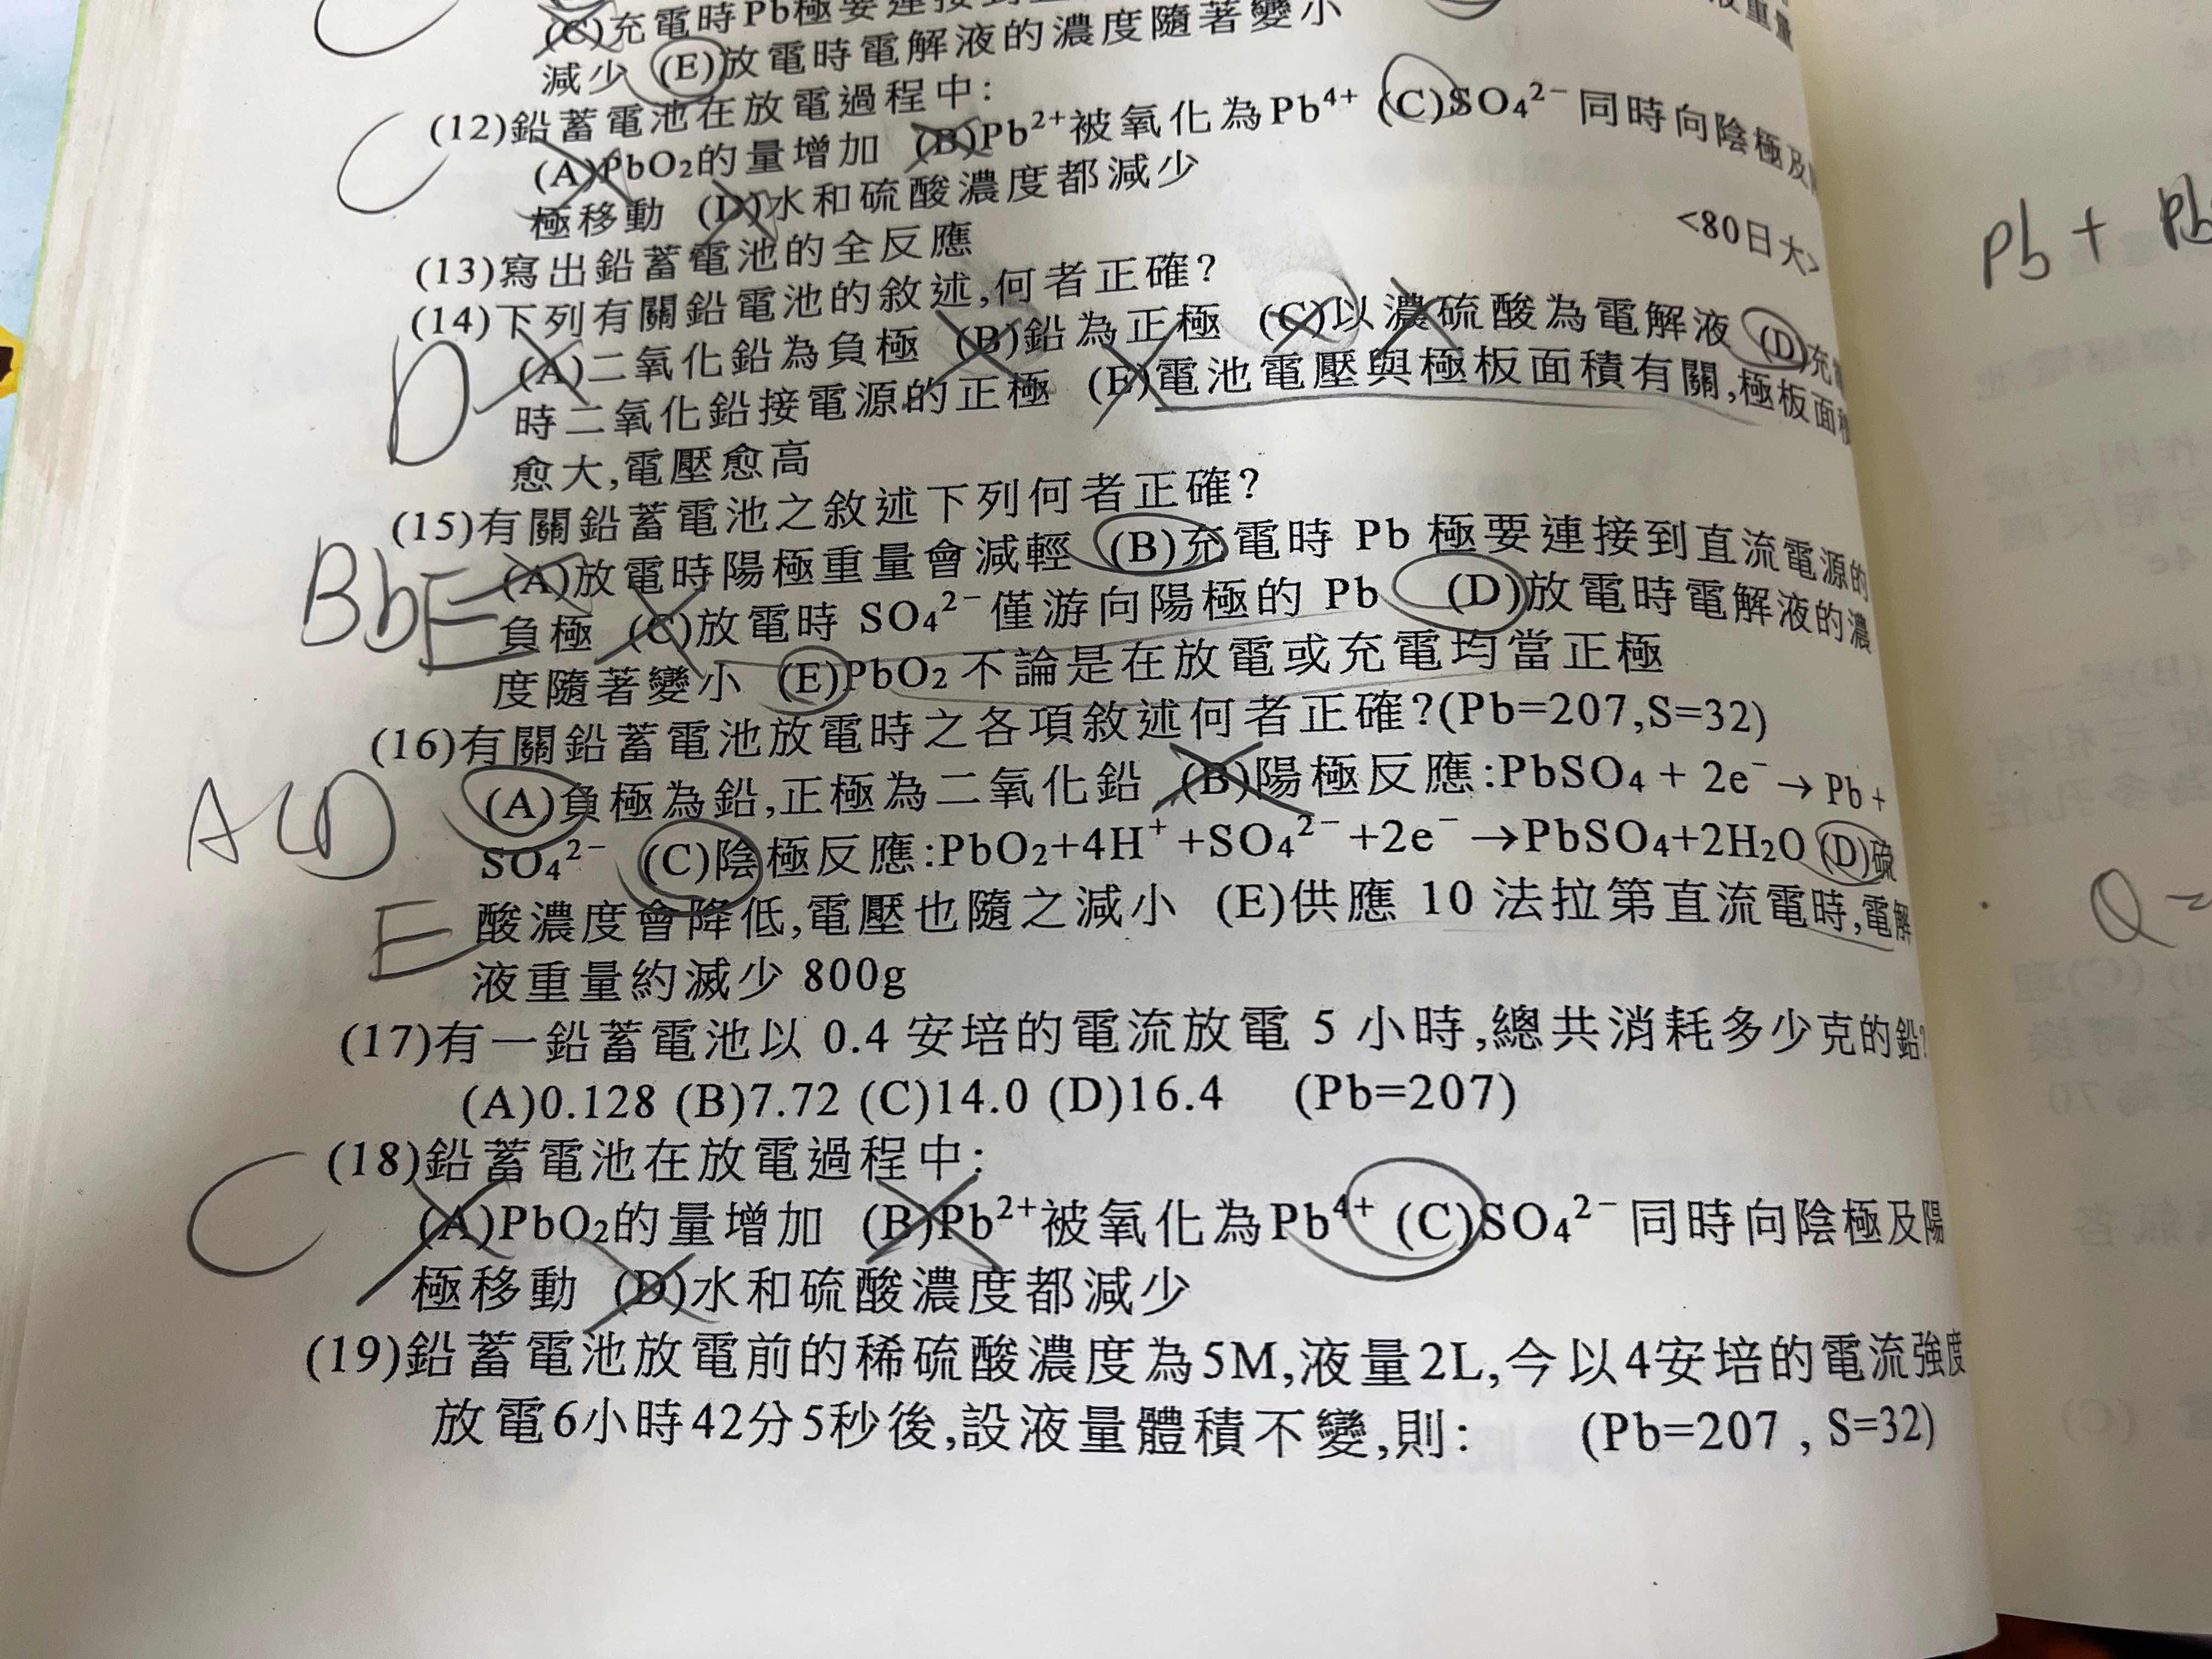 (C)充電時Pb極要連接到
重量
減少 (E)放電時電解液的濃度隨著變小
(12)鉛蓄電池在放電過程中:
C
(A)PbO₂的量增加 (B)Pb²⁺被氧化為Pb⁴⁺ (C)SO₄²⁻同時向陰極及
極移動 (D)水和硫酸濃度都減少
(13)寫出鉛蓄電池的全反應
<80日大>
Pb + Pb
(14)下列有關鉛電池的敘述,何者正確?
D
(A)二氧化鉛為負極 (B)鉛為正極 (C)以濃硫酸為電解液 (D)充電
時二氧化鉛接電源的正極 (E)電池電壓與極板面積有關,極板面積
愈大,電壓愈高
(15)有關鉛蓄電池之敘述下列何者正確?
(A)放電時陽極重量會減輕 (B)充電時 Pb 極要連接到直流電源的
負極 (C)放電時 SO₄²⁻僅游向陽極的 Pb (D)放電時電解液的濃
度隨著變小 (E)PbO₂不論是在放電或充電均當正極
(16)有關鉛蓄電池放電時之各項敘述何者正確?(Pb=207,S=32)
ACD
(A)負極為鉛,正極為二氧化鉛 (B)陽極反應:PbSO₄ + 2e⁻→ Pb +
SO₄²⁻ (C)陰極反應:PbO₂+4H⁺+SO₄²⁻+2e⁻→PbSO₄+2H₂O (D)硫
E
酸濃度會降低,電壓也隨之減小 (E)供應 10 法拉第直流電時,電解
Q=
液重量約減少 800g
(17)有一鉛蓄電池以 0.4 安培的電流放電 5 小時,總共消耗多少克的鉛?
(A)0.128 (B)7.72 (C)14.0 (D)16.4 (Pb=207)
(18)鉛蓄電池在放電過程中:
C
(A)PbO₂的量增加 (B)Pb²⁺被氧化為Pb⁴⁺ (C)SO₄²⁻同時向陰極及陽
極移動 (D)水和硫酸濃度都減少
(19)鉛蓄電池放電前的稀硫酸濃度為5M,液量2L,今以4安培的電流強度
放電6小時42分5秒後,設液量體積不變,則: (Pb=207 , S=32)